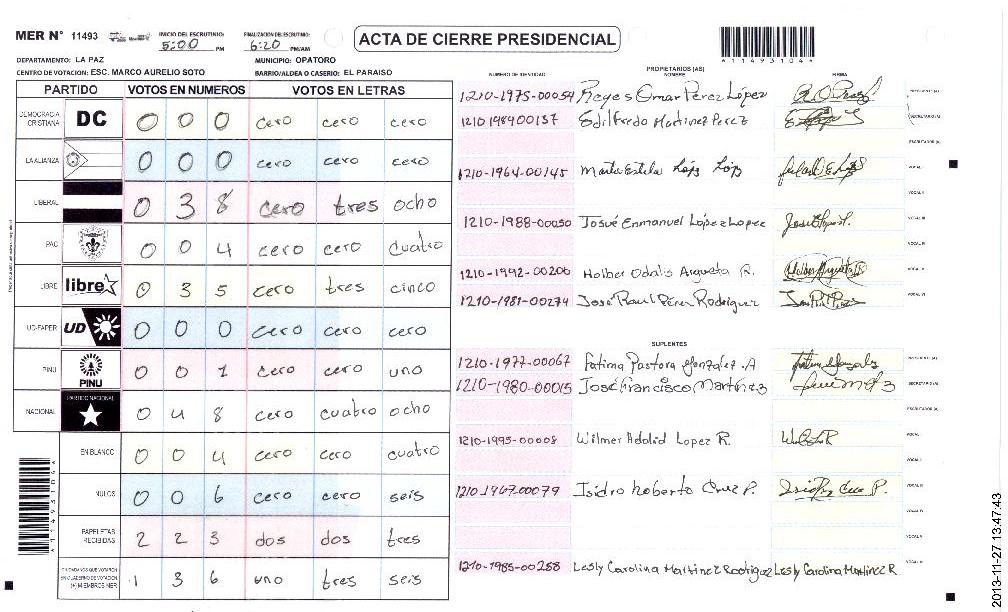 MER N° 11493
INICIO DEL ESCRUTINIO:
5:00 PM
FINALIZACION DEL ESCRUTINIO:
6:20 PM/AM
ACTA DE CIERRE PRESIDENCIAL
*11493104*
DEPARTAMENTO: LA PAZ
MUNICIPIO: OPATORO
CENTRO DE VOTACION: ESC. MARCO AURELIO SOTO
BARRIO/ALDEA O CASERIO: EL PARAISO
PARTIDO VOTOS EN NUMEROS VOTOS EN LETRAS
DEMOCRACIA CRISTIANA DC 0 0 0 cero cero cero
LA ALIANZA 0 0 0 cero cero cero
LIBERAL 0 3 8 cero tres ocho
PAC 0 0 4 cero cero cuatro
LIBRE libre 0 3 5 cero tres cinco
UD-FAPER UD 0 0 0 cero cero cero
PINU PINU 0 0 1 cero cero uno
NACIONAL PARTIDO NACIONAL 0 4 8 cero cuatro ocho
EN BLANCO 0 0 4 cero cero cuatro
NULOS 0 0 6 cero cero seis
PAPELETAS RECIBIDAS 2 2 3 dos dos tres
CIUDADANOS QUE VOTARON EN CUADERNO DE VOTACION (+) MIEMBROS MER 1 3 6 uno tres seis
PROPIETARIOS (AS)
NUMERO DE IDENTIDAD NOMBRE FIRMA
1210-1975-00054 Reyes Omar Perez López PRESIDENTE (A)
1210 1989 00157 Edilfredo Martinez Perez SECRETARIO (A)
ESCRUTADOR (A)
1210-1964-00145 Marta Estela López López VOCAL I
VOCAL II
1210-1988-00050 Josué Enmanuel López Lopez VOCAL III
VOCAL IV
1210-1992-00200 Holber Odalis Argueta R. VOCAL V
1210-1981-00274 José Raul Pérez Rodriguez VOCAL VI
SUPLENTES
1210-1977-00067 Fatima Pastora Gonzalez A PRESIDENTE (A)
1210-1980-00015 José Francisco Martínez SECRETARIO (A)
ESCRUTADOR (A)
1210-1995-00008 Wilmer Adalid Lopez R. VOCAL I
VOCAL II
1210-1967-00079 Isidro Roberto Cruz P. VOCAL III
VOCAL IV
VOCAL V
1210-1985-00288 Lesly Carolina Martinez Rodriguez Lesly Carolina Martinez R VOCAL VI
*11493104*
2013-11-27 13:47:43